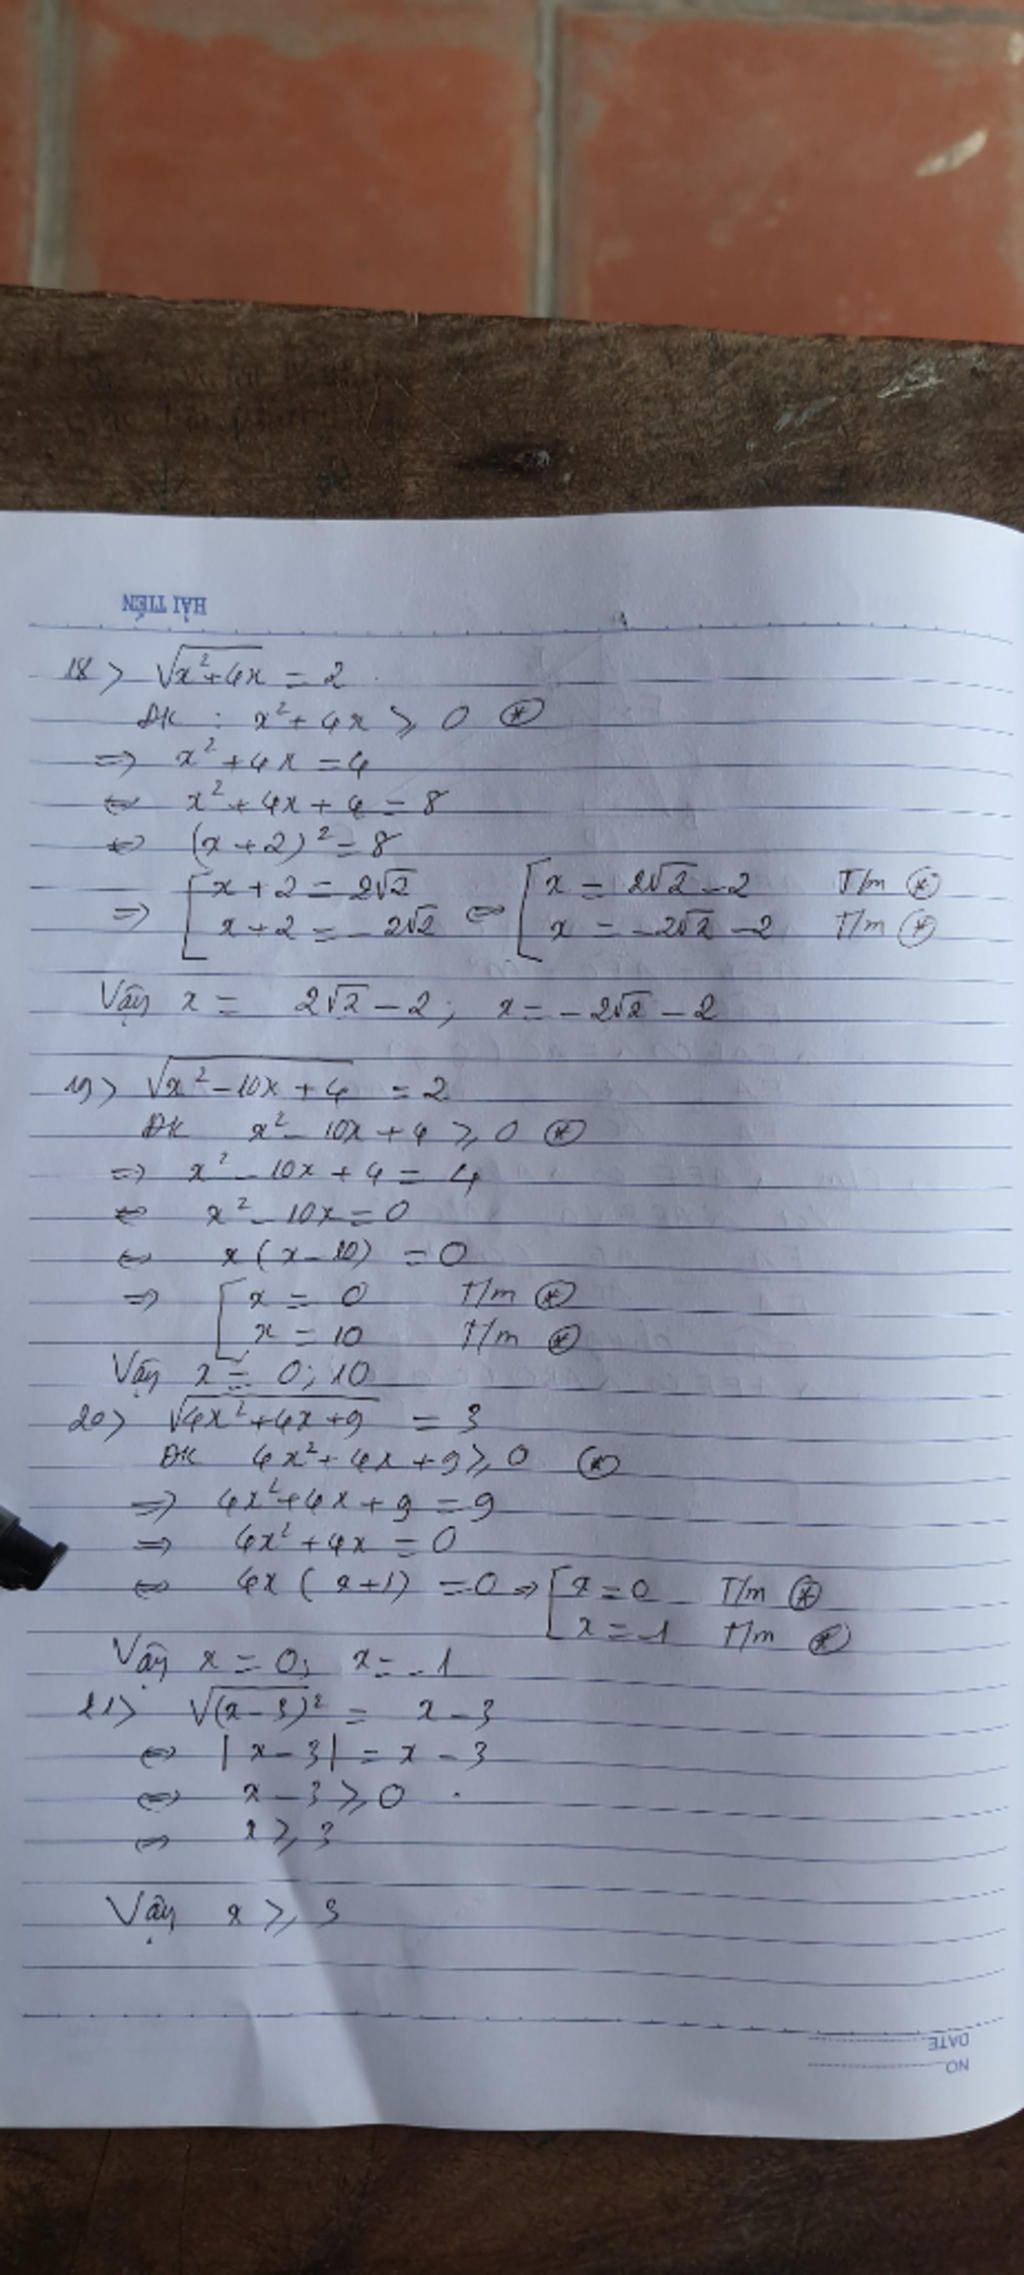 HẢI TIẾN
18> √x²+4x = 2
ĐK : x²+4x ⩾ 0 ⊛
=> x²+4x = 4
<=> x²+4x+4 = 8
<=> (x+2)² = 8
=> [ x+2 = 2√2 <=> [ x = 2√2 -2 T/m ⊛
x+2 = -2√2 x = -2√2 -2 T/m ⊛
Vậy x = 2√2 -2 ; x = -2√2 -2
19> √x²-10x+4 = 2
ĐK x²-10x+4 ⩾ 0 ⊛
=> x²-10x+4 = 4
<=> x²-10x = 0
<=> x(x-10) = 0
=> [ x = 0 T/m ⊛
x = 10 T/m ⊛
Vậy x = 0; 10
20> √4x²+4x+9 = 3
ĐK 4x²+4x+9 ⩾ 0 ⊛
=> 4x²+4x+9 = 9
=> 4x²+4x = 0
<=> 4x(x+1) = 0 => [ x = 0 T/m ⊛
x = -1 T/m ⊛
Vậy x = 0; x = -1
21> √(x-3)² = x-3
<=> |x-3| = x-3
<=> x-3 ⩾ 0
<=> x ⩾ 3
Vậy x ⩾ 3
DATE
NO